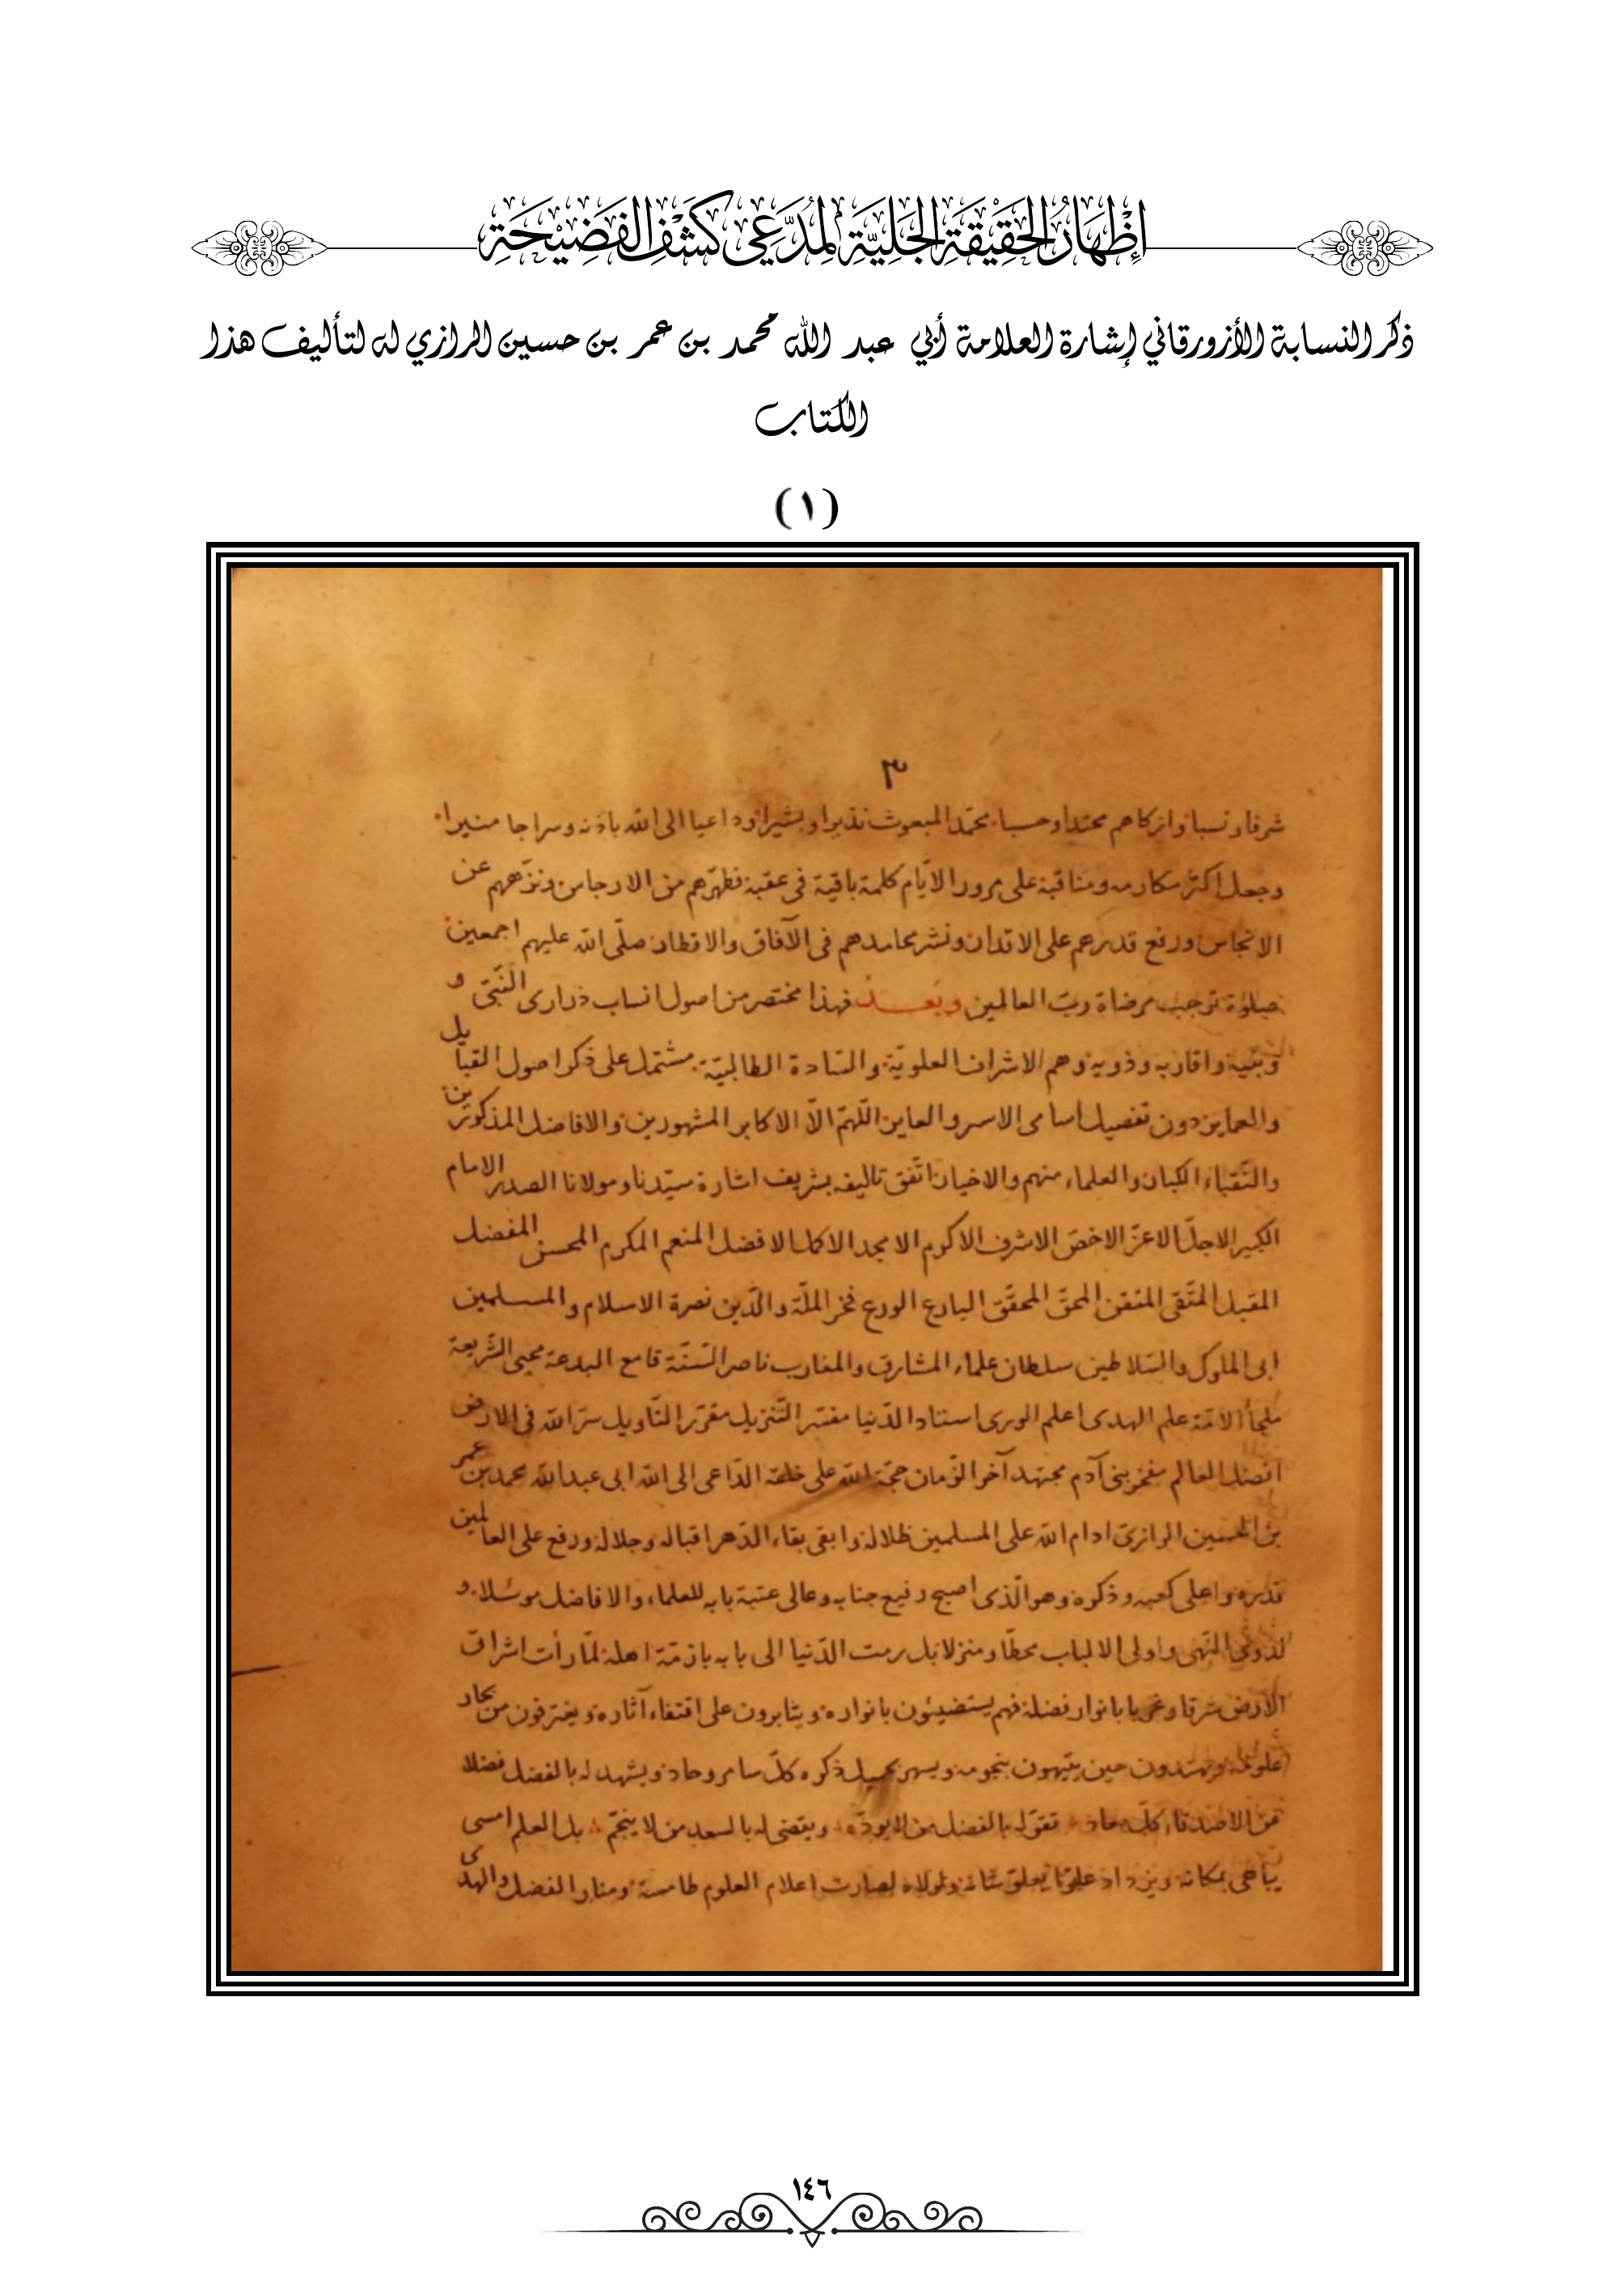 إِظْهَارُ الحَقِيْقَةِ الجَلِيَّةِ لِمُدَّعِي كَشْفِ الفَضِيْحَةِ
ذكر النسابة الأزورقاني إشارة العلامة أبي عبد الله محمد بن عمر بن حسين الرازي له لتأليف هذا
الكتاب
(١)
٣
شرفا ونسبا وازكاهم محتدا وحسبا محمّد المبعوث نذيرا وبشيرا وداعيا الى الله باذنه وسراجا منيرا
وجعل اكثر مكارمه ومناقبه على مرور الايّام كلمة باقية فى عقبه فطهّرهم من الارجاس ونزّههم عن
الانجاس ورفع قدرهم على الاقدار ونشر محامدهم فى الآفاق والاقطار صلّى الله عليهم اجمعين
صلوة توجب مرضاة ربّ العالمين وبعد فهذا مختصر من اصول انساب ذرارى النّبىّ و
وبنيه واقاربه وذويه وهم الاشراف العلويّة والسّادة الطالبيّة مشتمل على ذكر اصول القبايل
والعماير دون تفصيل اسامى الاسر والعاير اللّهمّ الّا الاكابر المشهورين والافاضل المذكورين
والنّقباء الكبار والعلماء منهم والاخيار اتّفق تاليفه بشريف اشارة سيّدنا ومولانا الصدر الامام
الكبير الاجلّ الاعزّ الاخصّ الاشرف الاكرم الامجد الاكمل الافضل المنعم المكرم المحسن المفضل
المقبل المتّقى المتقن المحقّ المحقّق البارع الورع فخر الملّة والدّين نصرة الاسلام والمسلمين
ابى الملوك والسّلاطين سلطان علماء المشارق والمغارب ناصر السّنّة قامع البدعة محيى الشّريعة
ملجأ الامّة علم الهدى اعلم الورى استاد الدّنيا مفسّر التّنزيل مقرّر التّأويل سرّ الله فى الارض
افضل العالم مفخر بنى آدم مجتهد آخر الزّمان حجّة الله على خلقه الدّاعى الى الله ابى عبد الله محمد بن عمر
بن الحسين الرازىّ ادام الله على المسلمين ظلاله وابقى بقاء الدّهر اقباله وجلاله ورفع على العالمين
قدره واعلى كعبه وذكره وهو الّذى اصبح رفيع جنابه وعالى عتبة بابه للعلماء والافاضل موئلا و
لذوى النّهى واولى الالباب محطّا ومنزلا بل رمت الدّنيا الى بابه بازمّة اهله لمّا رأت اشراق
الارض شرقا وغربا بانوار فضله فهم يستضيئون بانواره ويثابرون على اقتفاء آثاره ويغترفون من بحار
علومه ويهتدون حين يتيهون بنجومه ويسهر بجميل ذكره كلّ سامر وحاد ويشهد له بالفضل فضلا
من الاصدقاء كلّ معاد تقوّله بالفضل من لا يودّه ويقضى له بالسعد من لا ينجّم بل العلم امسى
يباهى بمكانه ويزداد علوّا بعلوّ شانه ولولاه لصارت اعلام العلوم طامسة ومنار الفضل والهدى
١٤٦